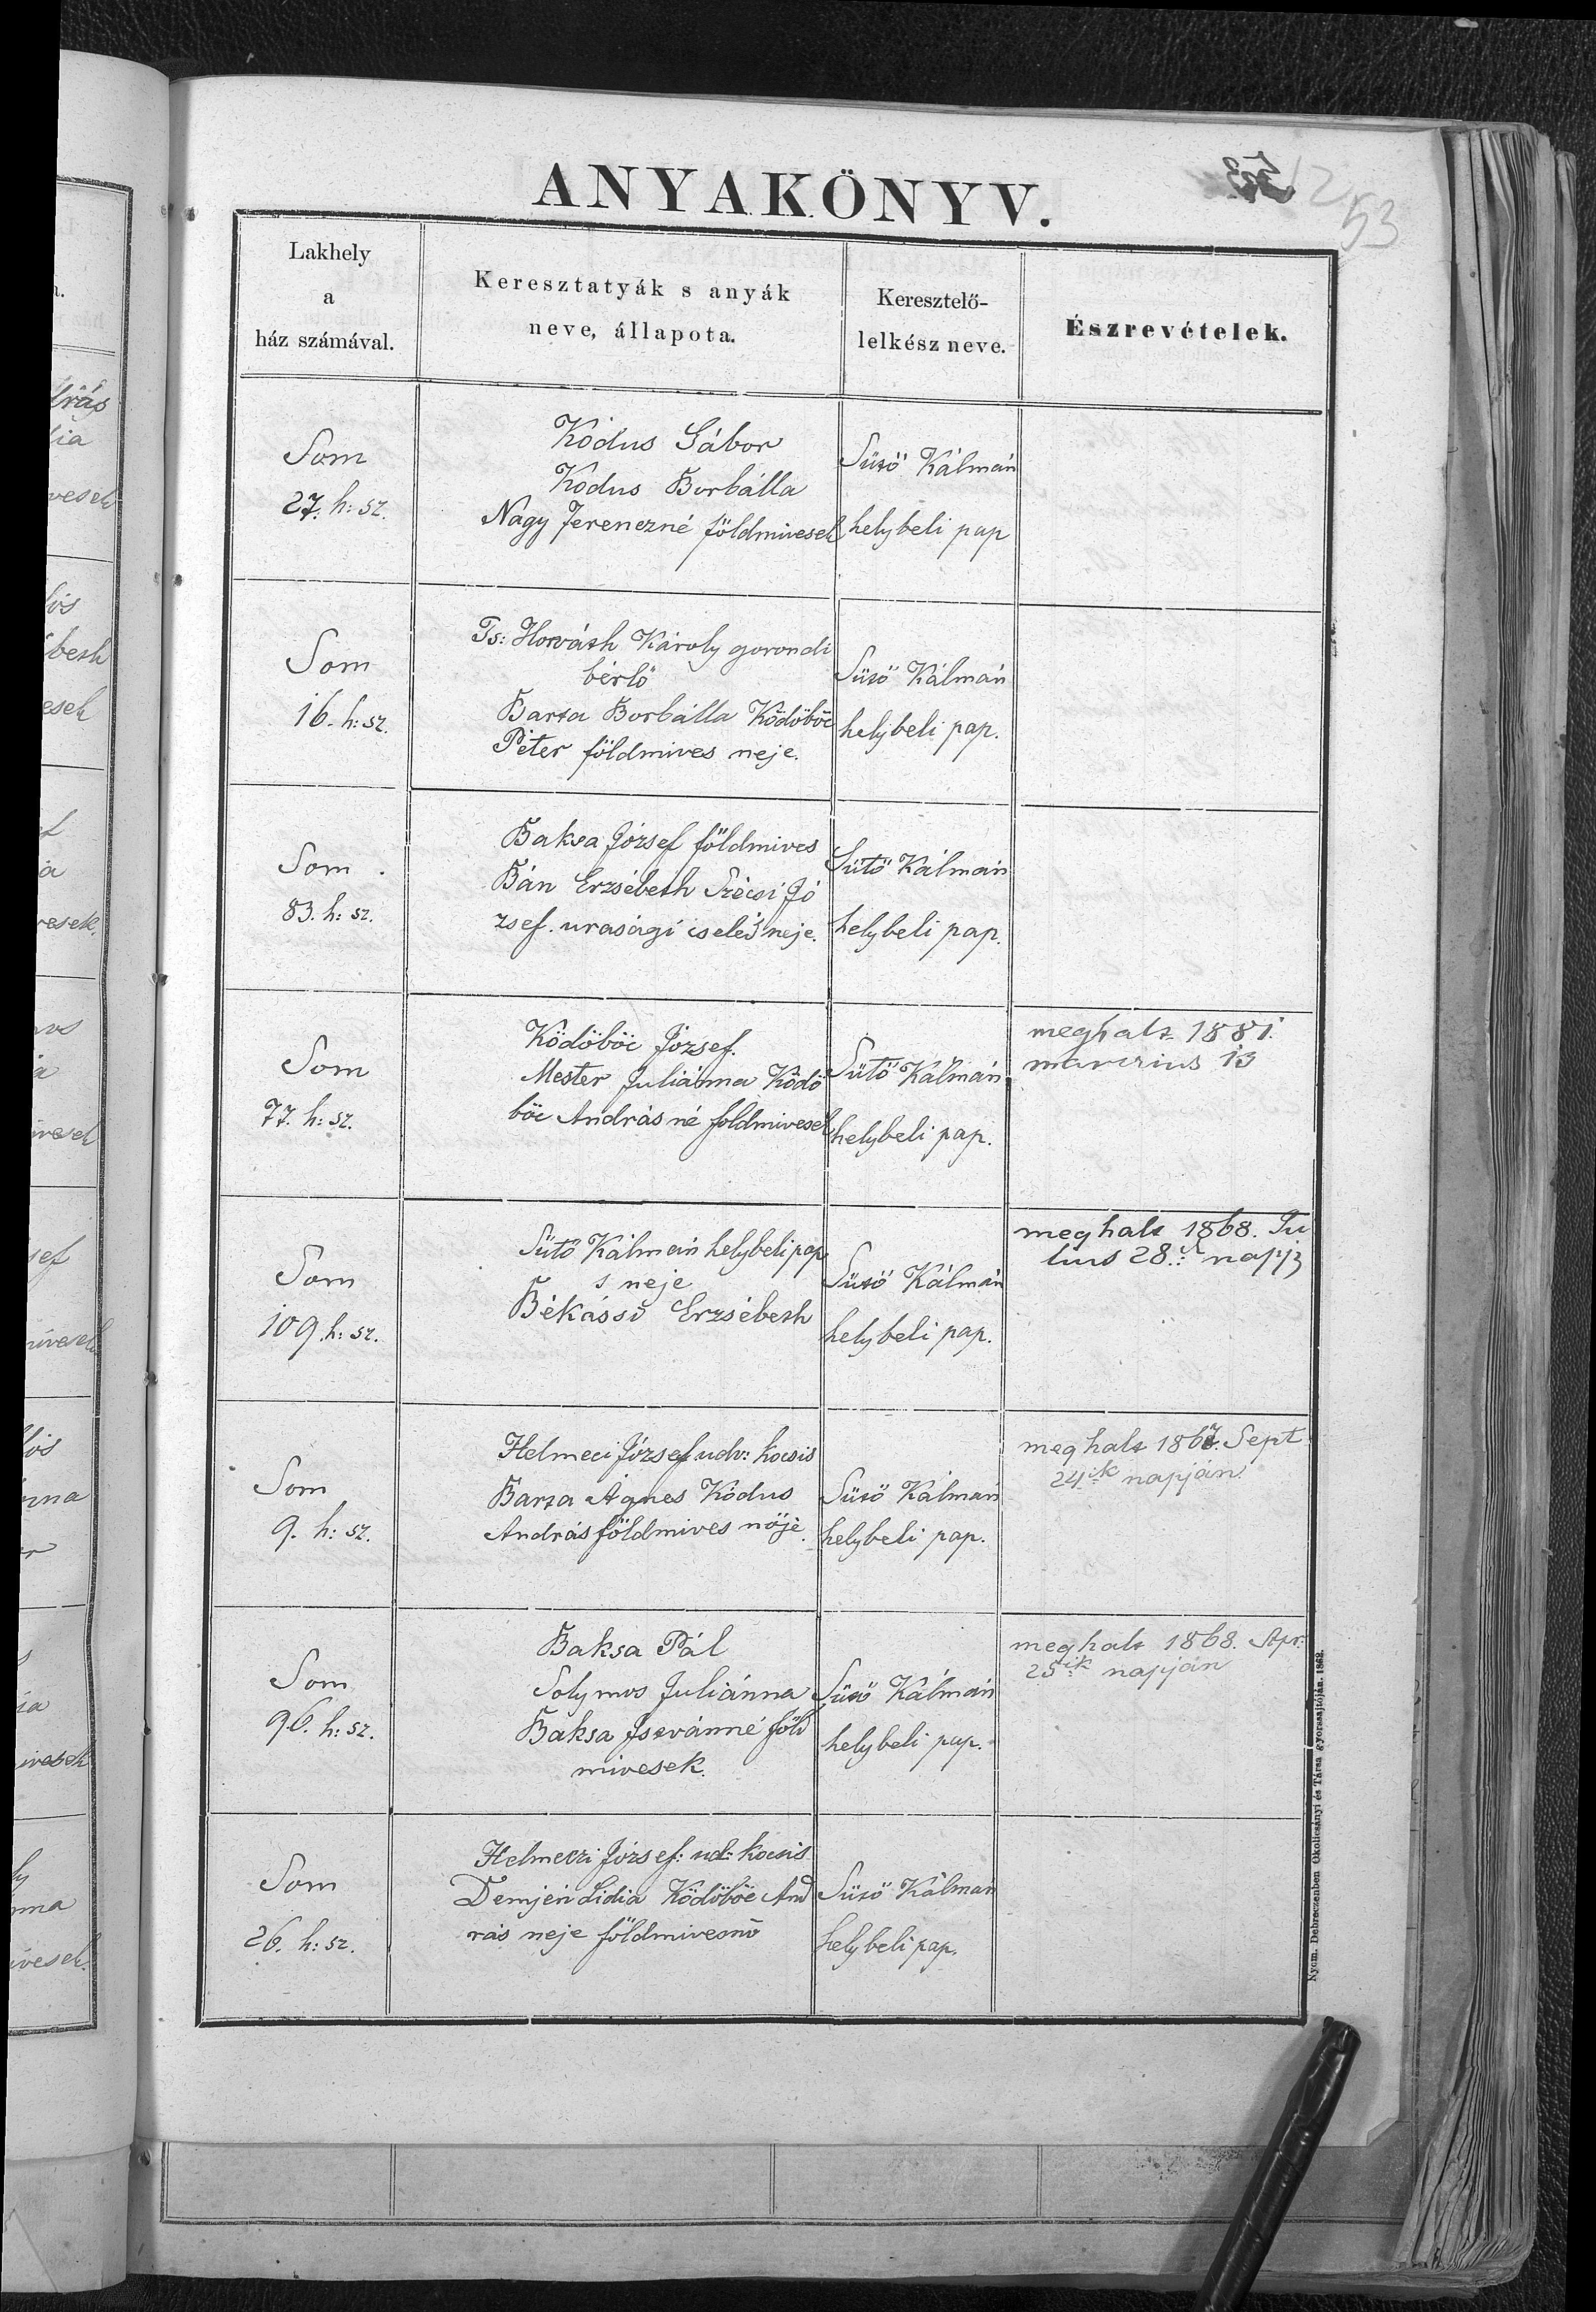 ANYAKÖNYV.
53
Lakhely
a
ház számával.
Keresztatyák s anyák
neve, állapota.
Keresztelő-
lelkész neve.
Észrevételek.
Som
27. h: sz.
Kódus Gábor
Kódus Borbálla
Nagy Ferenczné földmivesek
Sütő Kálmán
helybeli pap
Som
16. h: sz.
Ts: Horváth Károly gorondi
bérlő
Barta Borbálla Ködöböc
Péter földmives neje.
Sütő Kálmán
helybeli pap.
Som
83. h: sz.
Baksa József földmives
Bán Erzsébeth Szécsi Jó
zsef. urasági cseléd neje.
Sütő Kálmán
helybeli pap.
Som
77. h: sz.
Ködöböc József.
Mester Juliánna Ködö
böc Andrásné földmivesek
Sütő Kálmán
helybeli pap.
meghalt 1881.
marczius 13
Som
109. h: sz.
Sütő Kálmán helybeli pap
s neje
Békássi Erzsébeth
Sütő Kálmán
helybeli pap.
meghalt 1868. Ju
lius 28.
Som
9. h: sz.
Helmeci József udv: kocsis
Barta Ágnes Kódus
András földmives nője.
Sütő Kálmán
helybeli pap.
meghalt 1867. Sept
24ik napján.
Som
96. h: sz.
Baksa Pál
Solymos Juliánna
Baksa Istvánné föld
mivesek.
Sütő Kálmán
helybeli pap.
meghalt 1868. Apr:
25ik napján
Som
26. h: sz.
Helmeczi József: ud: kocsis
Demjén Lidia Ködöböc And
rás neje földmivesnő
Sütő Kálmán
helybeli pap.
Nyom. Debreczenben Okolicsányi és Társa gyorssajtóján. 1862.